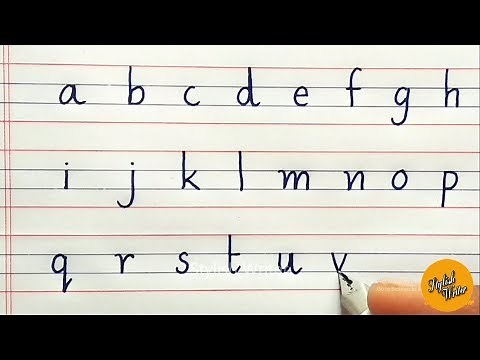 a b c d e f g h
i j k l m n o p
q r s t u v
Stylish
Writer